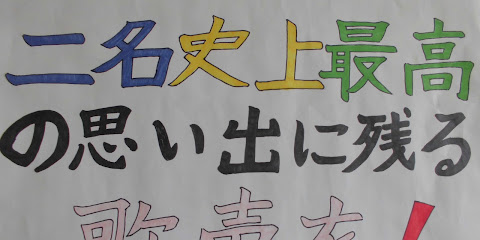 二名史上最高
の思い出に残る
歌声を!